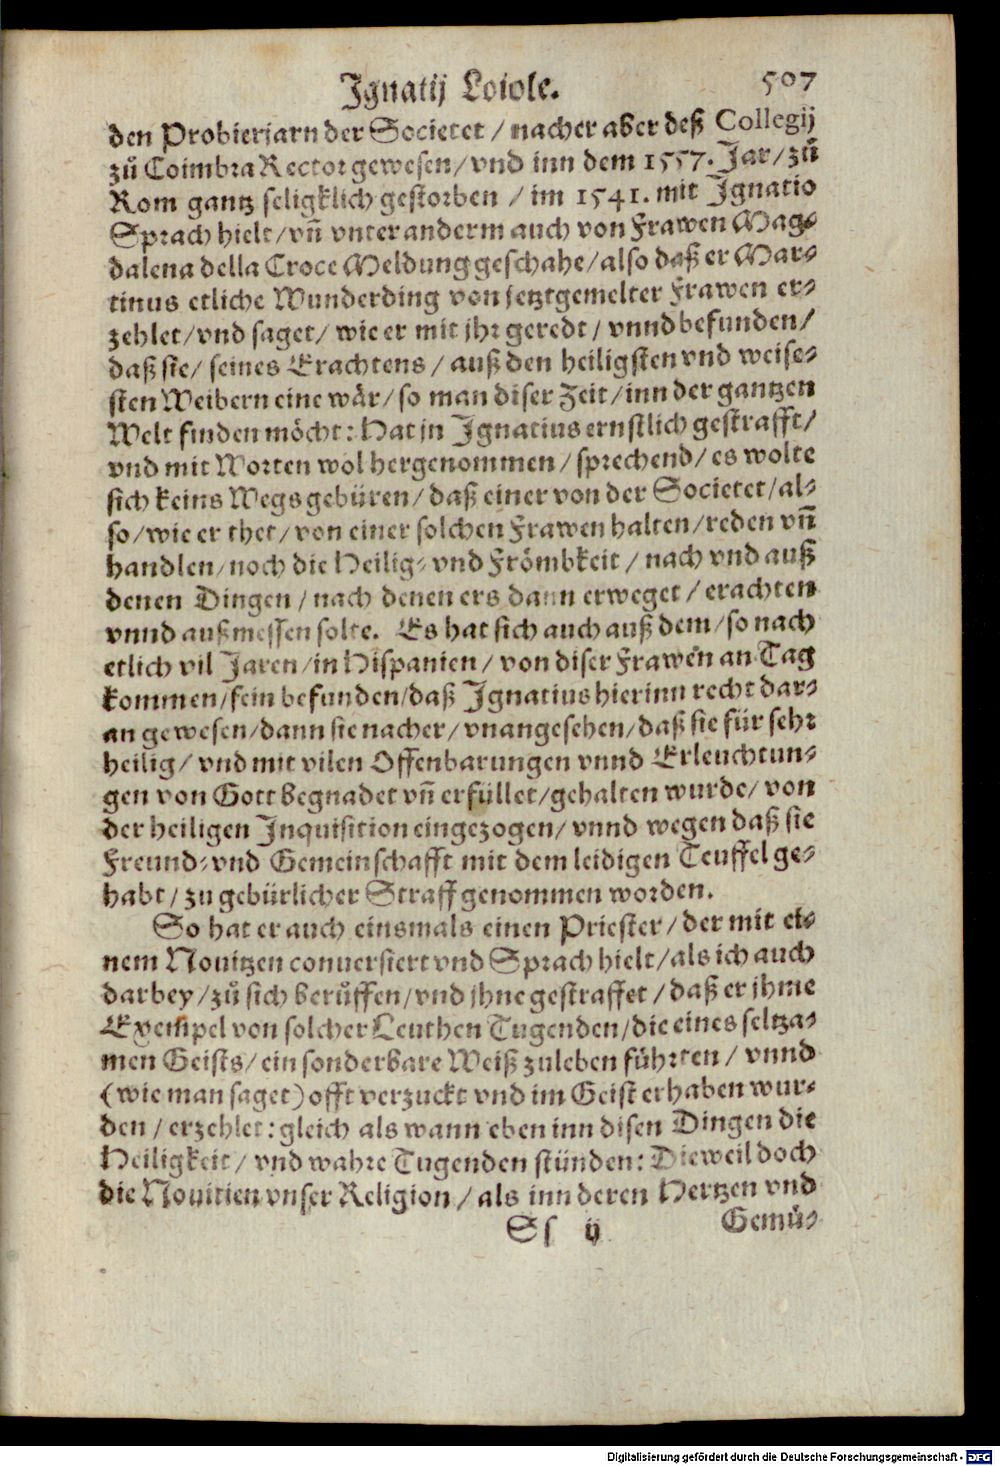 Ignatij Loiole. 507
den Probierjarn der Societet / nacher aber deß Collegij
zů Coimbra Rector gewesen / vnd inn dem 1557. Jar / zů
Rom gantz seligklich gestorben / im 1541. mit Ignatio
Sprach hielt / vñ vnter anderm auch von Frawen Mag-
dalena della Croce Meldung geschahe / also daß er Mar-
tinus etliche Wunderding von jetztgemelter Frawen er-
zehlet / vnd saget / wie er mit jhr geredt / vnnd befunden /
daß sie / seines Erachtens / auß den heiligsten vnd weise-
sten Weibern eine wär / so man diser Zeit / inn der gantzen
Welt finden möcht: Hat jn Ignatius ernstlich gestrafft /
vnd mit Worten wol hergenommen / sprechend / es wolte
sich keins Wegs gebüren / daß einer von der Societet / al-
so / wie er thet / von einer solchen Frawen halten / reden vñ
handlen / noch die Heilig- vnd Frömbkeit / nach vnd auß
denen Dingen / nach denen ers dann erweget / erachten
vnnd außmessen solte. Es hat sich auch auß dem / so nach
etlich vil Jaren / in Hispanien / von diser Frawen an Tag
kommen / fein befunden / daß Ignatius hierinn recht dar-
an gewesen / dann sie nacher / vnangesehen / daß sie für sehr
heilig / vnd mit vilen Offenbarungen vnnd Erleuchtun-
gen von Gott begnadet vñ erfüllet / gehalten wurde / von
der heiligen Inquisition eingezogen / vnnd wegen daß sie
Freund- vnd Gemeinschafft mit dem leidigen Teuffel ge-
habt / zu gebürlicher Straff genommen worden.
So hat er auch einsmals einen Priester / der mit ei-
nem Nouitzen conuersiert vnd Sprach hielt / als ich auch
darbey / zů sich berůffen / vnd jhne gestraffet / daß er jhme
Exempel von solcher Leuthen Tugenden / die eines seltza-
men Geists / ein sonderbare Weiß zuleben führten / vnnd
(wie man saget) offt verzuckt vnd im Geist erhaben wur-
den / erzehlet: gleich als wann eben inn disen Dingen die
Heiligkeit / vnd wahre Tugenden stünden: Dieweil doch
die Nouitien vnser Religion / als inn deren Hertzen vnd
Ss ij Gemü-
Digitalisierung gefördert durch die Deutsche Forschungsgemeinschaft - DFG